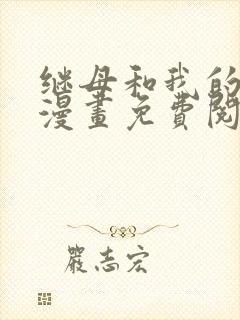 继母和我的
漫畫免費閱
嚴志宏